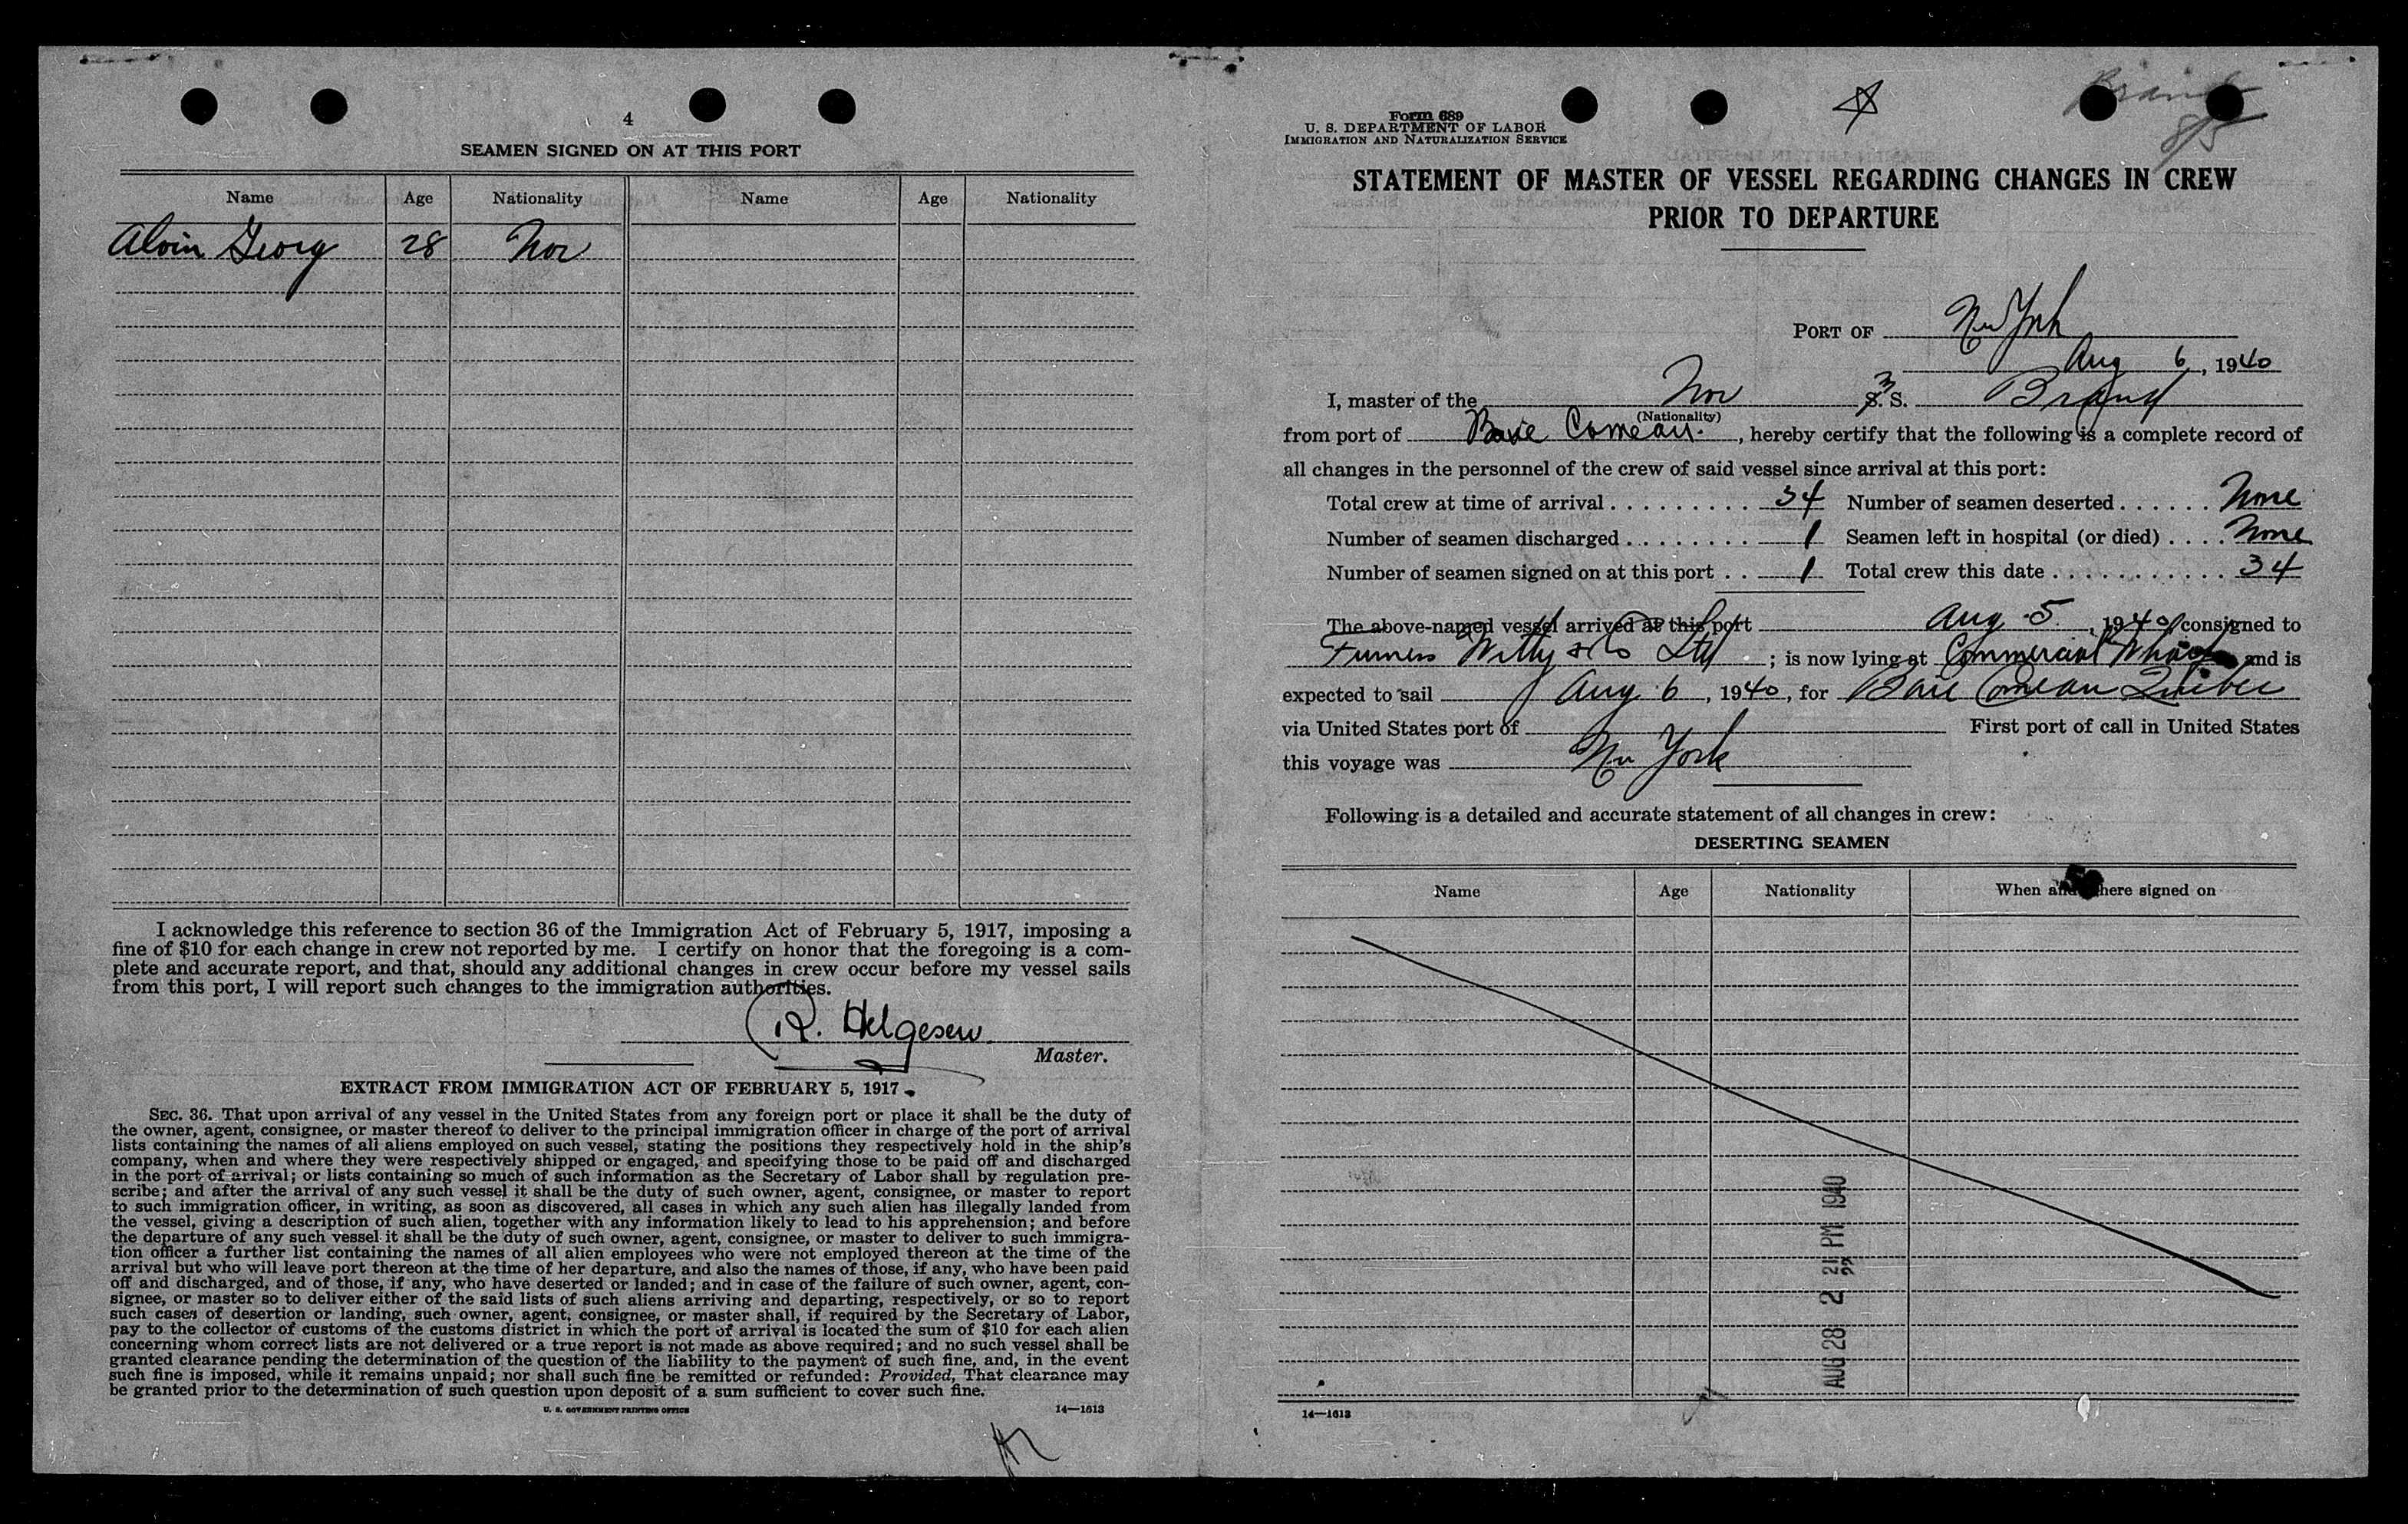 4
SEAMEN SIGNED ON AT THIS PORT
Name Age Nationality Name Age Nationality
Alvin Georg 28 Nor
I acknowledge this reference to section 36 of the Immigration Act of February 5, 1917, imposing a
fine of $10 for each change in crew not reported by me. I certify on honor that the foregoing is a com-
plete and accurate report, and that, should any additional changes in crew occur before my vessel sails
from this port, I will report such changes to the immigration authorities.
R. Helgesen
Master.
EXTRACT FROM IMMIGRATION ACT OF FEBRUARY 5, 1917.
SEC. 36. That upon arrival of any vessel in the United States from any foreign port or place it shall be the duty of
the owner, agent, consignee, or master thereof to deliver to the principal immigration officer in charge of the port of arrival
lists containing the names of all aliens employed on such vessel, stating the positions they respectively hold in the ship's
company, when and where they were respectively shipped or engaged, and specifying those to be paid off and discharged
in the port of arrival; or lists containing so much of such information as the Secretary of Labor shall by regulation pre-
scribe; and after the arrival of any such vessel it shall be the duty of such owner, agent, consignee, or master to report
to such immigration officer, in writing, as soon as discovered, all cases in which any such alien has illegally landed from
the vessel, giving a description of such alien, together with any information likely to lead to his apprehension; and before
the departure of any such vessel it shall be the duty of such owner, agent, consignee, or master to deliver to such immigra-
tion officer a further list containing the names of all alien employees who were not employed thereon at the time of the
arrival but who will leave port thereon at the time of her departure, and also the names of those, if any, who have been paid
off and discharged, and of those, if any, who have deserted or landed; and in case of the failure of such owner, agent, con-
signee, or master so to deliver either of the said lists of such aliens arriving and departing, respectively, or so to report
such cases of desertion or landing, such owner, agent, consignee, or master shall, if required by the Secretary of Labor,
pay to the collector of customs of the customs district in which the port of arrival is located the sum of $10 for each alien
concerning whom correct lists are not delivered or a true report is not made as above required; and no such vessel shall be
granted clearance pending the determination of the question of the liability to the payment of such fine, and, in the event
such fine is imposed, while it remains unpaid; nor shall such fine be remitted or refunded: Provided, That clearance may
be granted prior to the determination of such question upon deposit of a sum sufficient to cover such fine.
U. S. GOVERNMENT PRINTING OFFICE 14—1613
Form 689
U. S. DEPARTMENT OF LABOR
IMMIGRATION AND NATURALIZATION SERVICE
Brand
8/5
STATEMENT OF MASTER OF VESSEL REGARDING CHANGES IN CREW
PRIOR TO DEPARTURE
PORT OF New York
Aug 6, 1940
I, master of the Nor M. S. Brand
(Nationality)
from port of Baie Comeau, hereby certify that the following is a complete record of
all changes in the personnel of the crew of said vessel since arrival at this port:
Total crew at time of arrival 34 Number of seamen deserted None
Number of seamen discharged 1 Seamen left in hospital (or died) None
Number of seamen signed on at this port 1 Total crew this date 34
The above-named vessel arrived at this port Aug 5, 1940, consigned to
Furness Withy & Co Ltd; is now lying at Commercial Wharf and is
expected to sail Aug 6, 1940, for Baie Comeau Quebec
via United States port of First port of call in United States
this voyage was New York
Following is a detailed and accurate statement of all changes in crew:
DESERTING SEAMEN
Name Age Nationality When and where signed on
AUG 28 2 21 PM 1940
14—1613